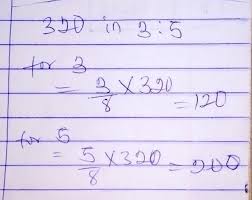 320 in 3:5
for 3
= 3/8 × 320 = 120
for 5
= 5/8 × 320 = 200